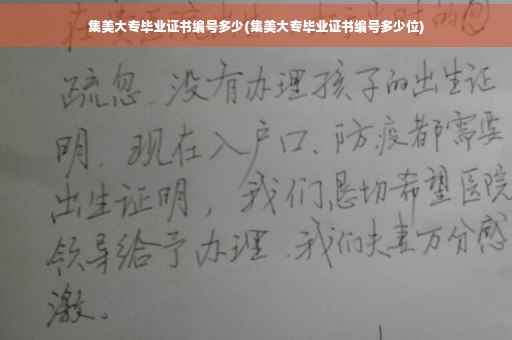 集美大专毕业证书编号多少(集美大专毕业证书编号多少位)
疏忽、没有办理孩子的出生证
明、现在入户口、防疫都需要
出生证明，我们恳切希望医院
领导给予办理、我们夫妻万分感
激。